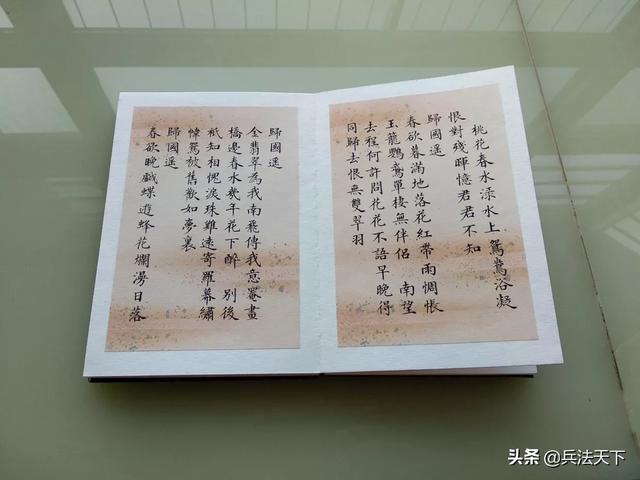 桃花春水渌水上鴛鴦浴凝
恨對殘暉憶君君不知
歸國遥
春欲暮滿地落花紅帶雨惆悵
玉籠鸚鵡單棲無伴侶 南望
去程何許問花花不語早晚得
同歸去恨無雙翠羽
歸國遥
金翡翠為我南飛傳我意罨畫
橋邊春水幾年花下醉 別後
衹知相愧淚珠難遠寄羅幕繡
幃鴛舊歡如夢裏
歸國遥
春欲晚戲蝶遊蜂花爛漫日落
头条 @兵法天下